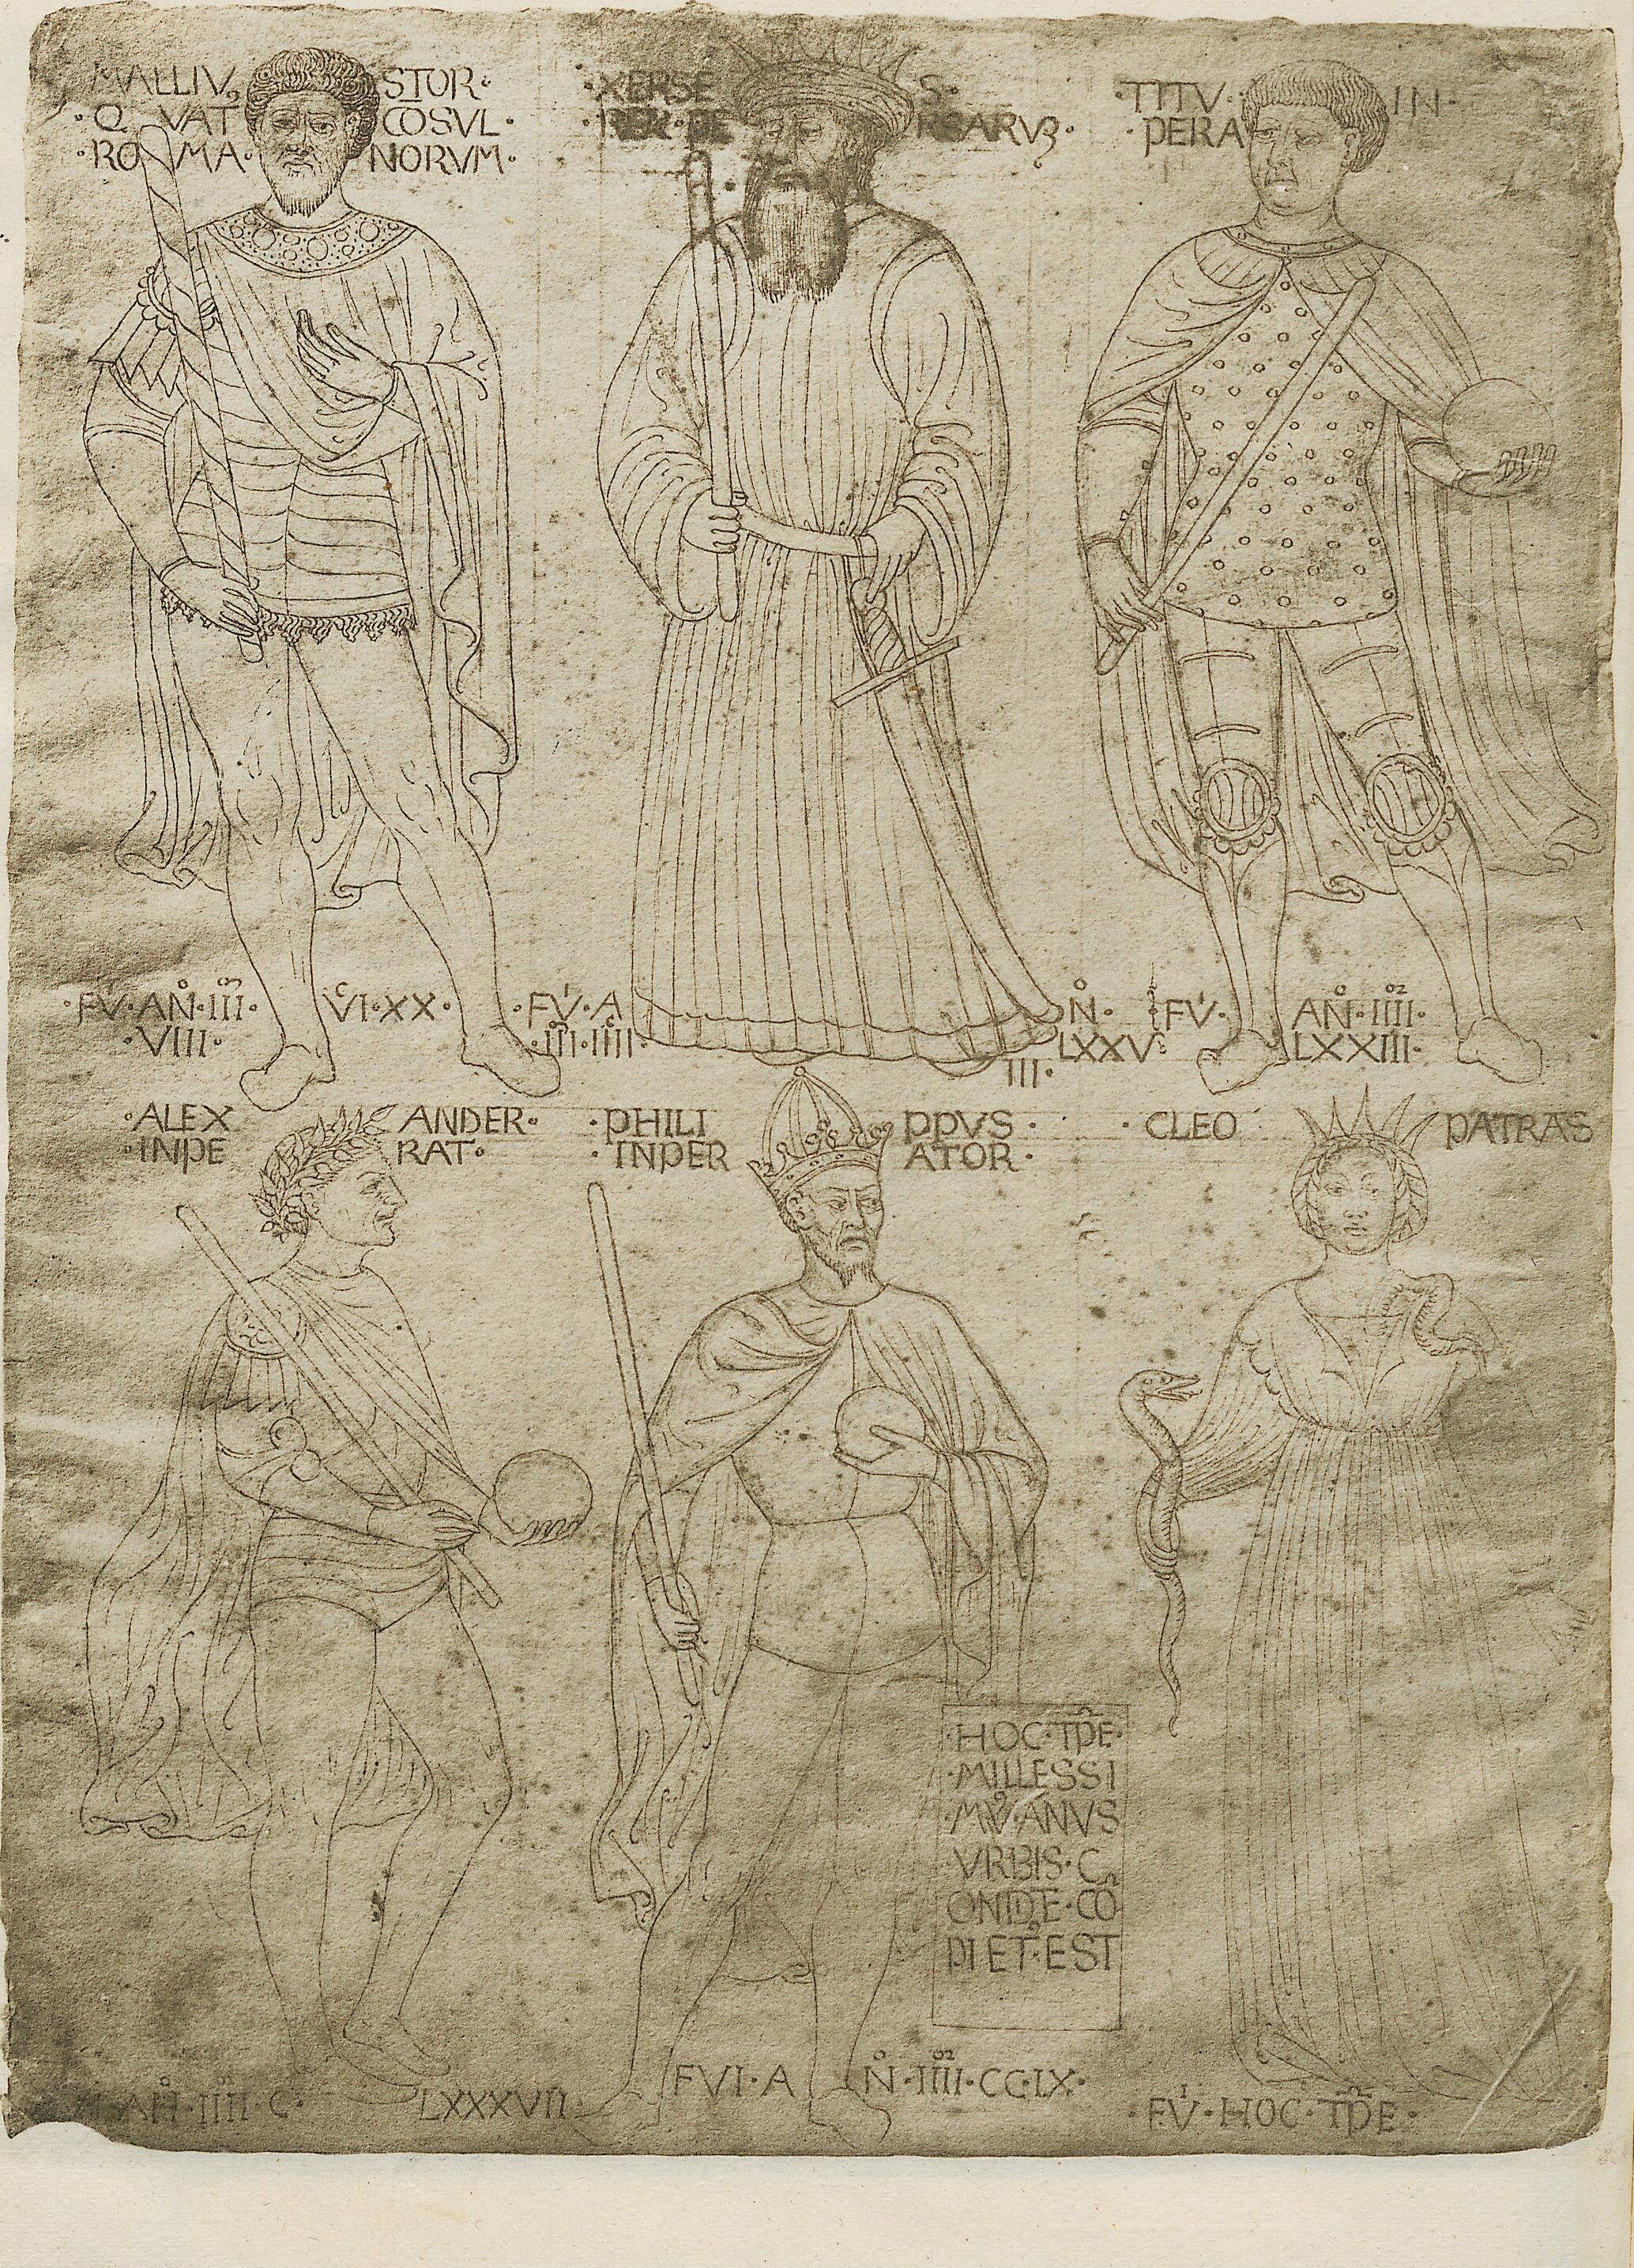 MALLIVꝰ STOR·
·Q VAT COSVL·
·RO MA· NORVM·
·XERSE S·
·REX·PE RSARVꝫ·
·TITV· IN·
·PERA
·FV·AN·III· VI·XX·
·VIII·
·FVI·A N·
·III·IIII· LXXV
III·
FVI· AN·IIII·
LXXIII·
·ALEX ANDER·
·INPE RAT·
·PHILI PPVS·
·INPER ATOR·
·CLEO PATRAS
·HOC·TPE·
·MILLESSI
·MV·ANVS
VRBIS·C
ONIDE·CO
PIET·EST
AN·IIII·C· LXXXVII·
FVI·A N·IIII·CC·IX·
·FVI·HOC·TPE·